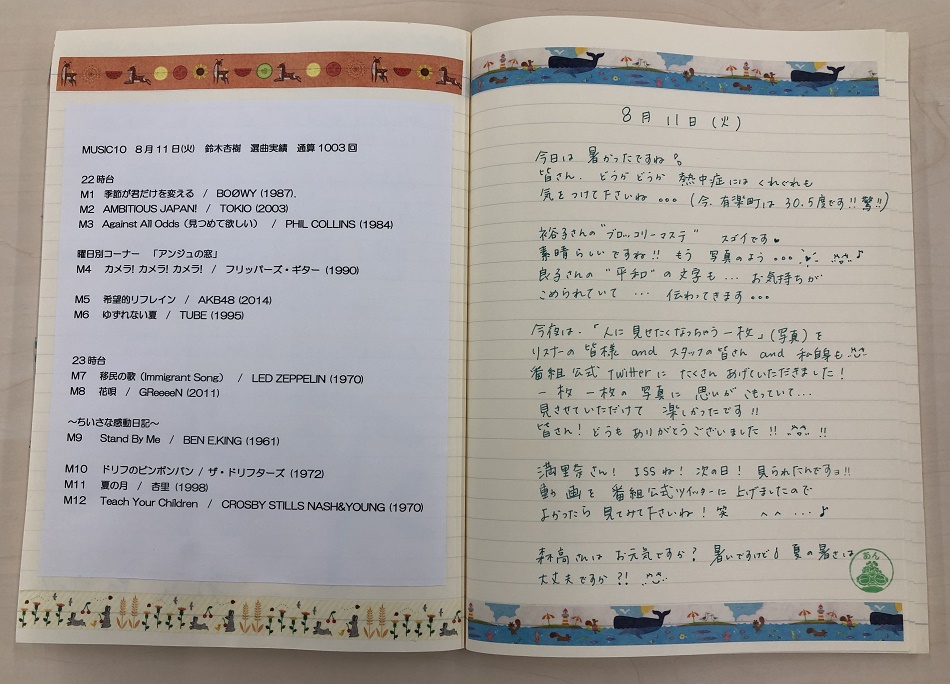 MUSIC10 8月11日(火) 鈴木杏樹 選曲実績 通算1003回
22時台
M1 季節が君だけを変える / BOØWY (1987).
M2 AMBITIOUS JAPAN! / TOKIO (2003)
M3 Against All Odds (見つめて欲しい) / PHIL COLLINS (1984)
曜日別コーナー 「アンジュの窓」
M4 カメラ!カメラ!カメラ! / フリッパーズ・ギター (1990)
M5 希望的リフレイン / AKB48 (2014)
M6 ゆずれない夏 / TUBE (1995)
23時台
M7 移民の歌 (Immigrant Song) / LED ZEPPELIN (1970)
M8 花唄 / GReeeeN (2011)
~ちいさな感動日記~
M9 Stand By Me / BEN E.KING (1961)
M10 ドリフのピンポンパン / ザ・ドリフターズ (1972)
M11 夏の月 / 杏里 (1998)
M12 Teach Your Children / CROSBY STILLS NASH&YOUNG (1970)
8月11日(火)
今日は 暑かったですね。
皆さん、どうかどうか 熱中症には くれぐれも
気をつけて下さいね 。。。(今、有楽町は 30.5度です!!驚!!)
裕子さんの"ブロッコリーマステ" スゴイです♥
素晴らしいですね!! もう 写真のよう 。。。 ♪
良子さんの "平和"の文字も ... お気持ちが
こめられていて ... 伝わってきます 。。。
今夜は、「人に見せたくなっちゃう一枚」(写真)を
リスナーの皆様 and スタッフの皆さん and 私自身も
番組公式 twitterに たくさん あげていただきました!
一枚 一枚の 写真に 思いが こもっていて...
見させていただけて 楽しかったです!!
皆さん!どうも ありがとうございました!! !!
満里奈さん! ISSね!次の日!見られたんですョ!!
動画を 番組公式ツイッターに上げましたので
よかったら 見てみて下さいね!笑 ^^ ...♪
森高さんは お元気ですか?暑いですけど 夏の暑さは
大丈夫ですか?!
あん